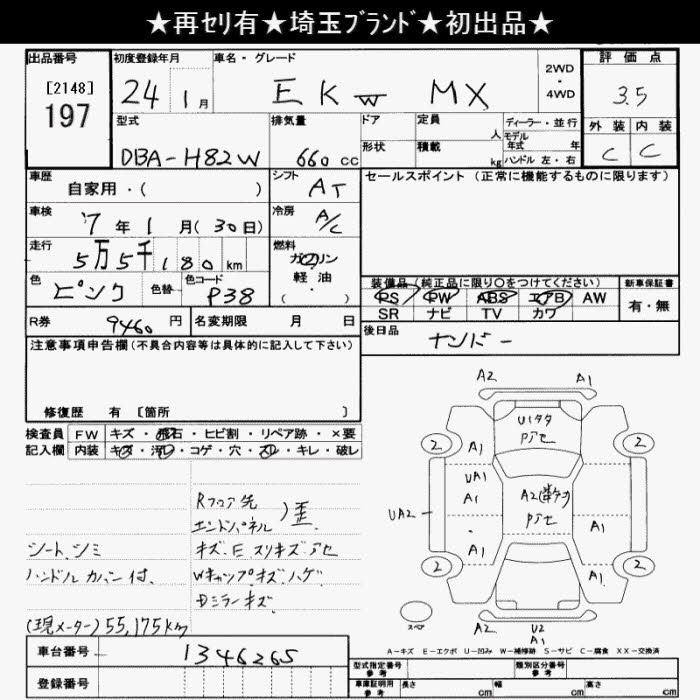 ★再セリ有★埼玉ﾌﾞﾗﾝﾄﾞ★初出品★
出品番号 初度登録年月 車名・グレード 2WD・4WD 評価点
[2148]
197
24 1月 EKw MX 3.5
型式 排気量 ドア 定員 人 ディーラー・並行 外装 内装
DBA-H82W 660cc 形状 積載 kg モデル年式 年 ハンドル 左・右 C C
車歴 自家用・( ) シフト AT セールスポイント(正常に機能するものに限ります)
車検 '7年1月(30日) 冷房 A/C
走行 5万5千180km 燃料 ガソリン・軽油・( )
色 ピンク 色替 色コード P38
装備品(純正品に限り○をつけてください) 新車保証書
PS PW ABS エアB AW 有・無
SR ナビ TV カワ
R券 9460円 名変期限 月 日 後日品 ナンバー
注意事項申告欄(不具合内容等は具体的に記入して下さい)
修復歴 有 [箇所 ]
検査員 FW キズ・飛石・ヒビ割・リペア跡・×要
記入欄 内装 キズ・汚レ・コゲ・穴・スレ・キレ・破レ
Rフロア先
エンドパネル )歪
シート、シミ キズ.E スリキズアセ
ハンドルカバー付. Wキャップキズ.ハゲ
Dミラーキズ
(現メーター)55,175km
A2 A1
U1タタ
Pアセ
2 2
A1
UA1
A1
A2
Pアセ
UA2
A1
A1
A1
2 2
スペア
A2 U2
A1
A-キズ E-エクボ U-凹み W-補修跡 S-サビ C-腐食 XX-交換済
車台番号 1346265
登録番号
型式指定番号 参考 類別区分番号 参考
車庫証明用 参考 長さ cm 幅 cm 高さ cm